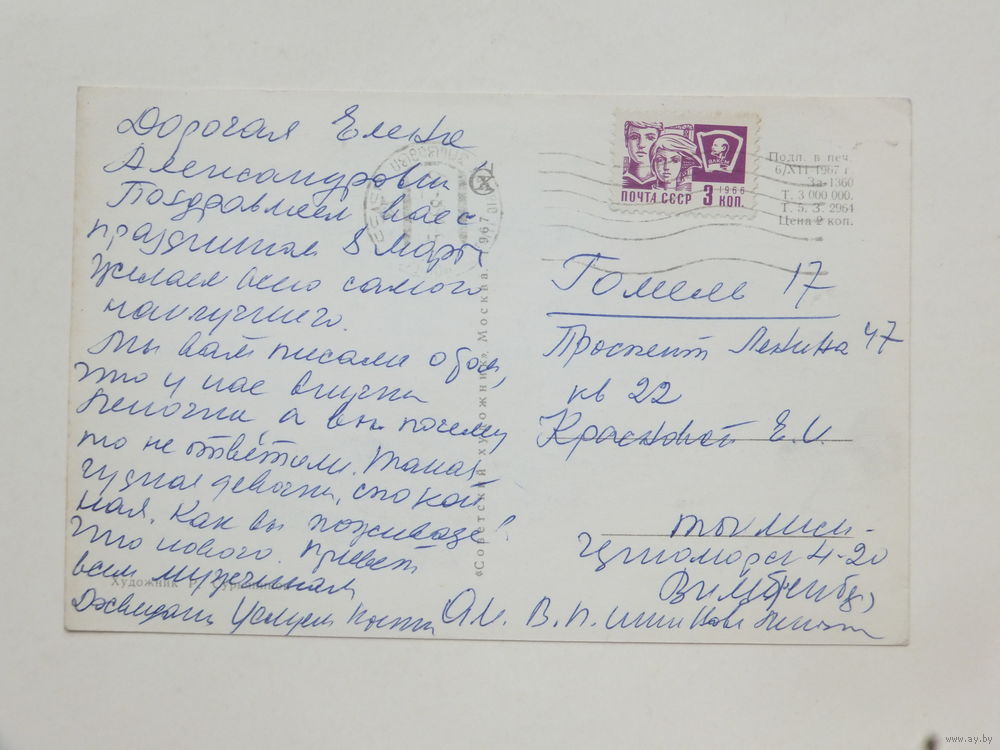 Дорогая Елена
Александровна
Поздравляем вас с
праздником 8 Марта
Желаем всего самого
наилучшего.
Мы вам писали о том,
что у нас внучка
Леночка, а вы почему
то не ответили. Такая
чудная девочка, спокой
ная. Как вы поживаете?
Что нового. Привет
всем мужчинам
Целуем
ПОЧТА СССР 3 КОП.
1966
ВЛКСМ
Подп. в печ.
6/XII 1967 г.
За-1360
Т. 3 000 000.
Т. 5. З. 2964
Цена 2 коп.
«Советский художник». Москва. 1967
Гомель 17
Проспект Ленина 47
кв 22
Красновой Е.
4-20
Художник
www.ay.by